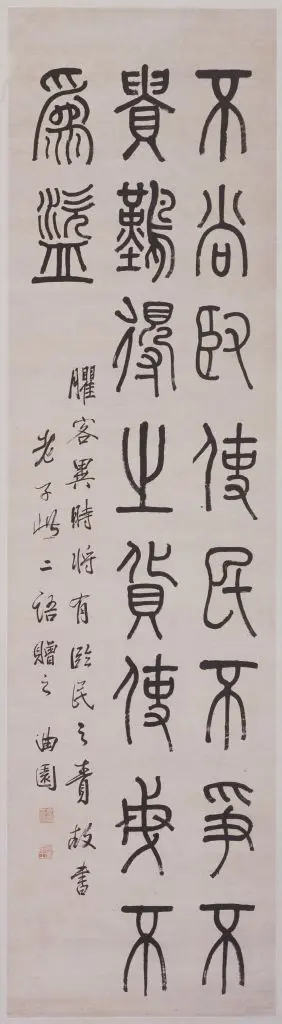 不尚臤使民不爭不
貴難得之貨使民不
爲盜
臞客異時將有臨民之責故書
老子此二語贈之 曲園